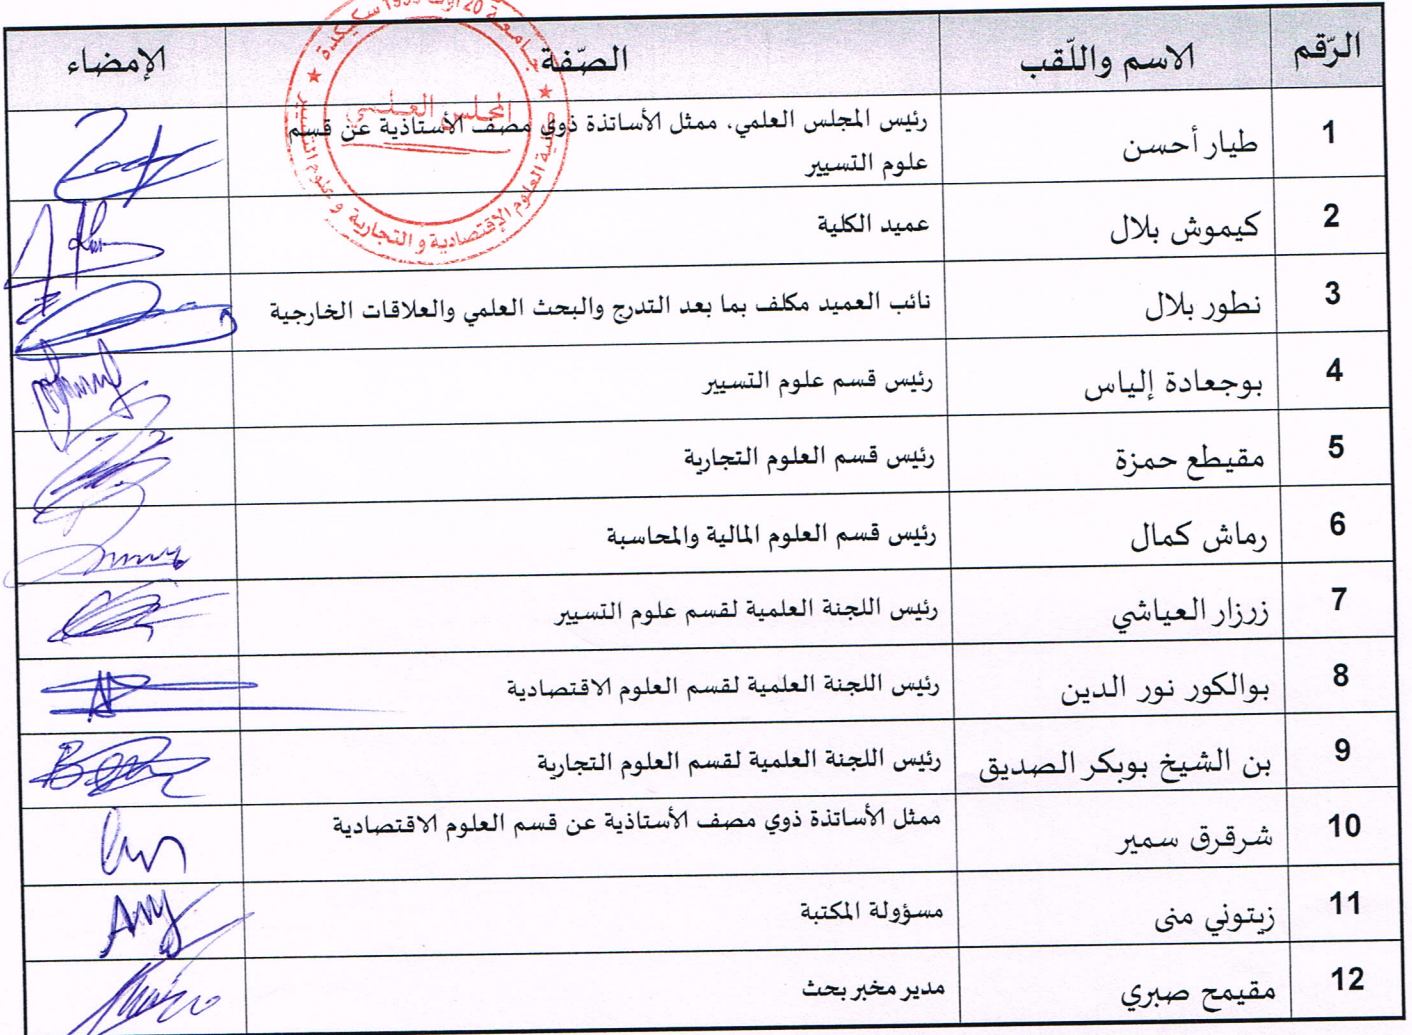 الرّقم الاسم واللّقب الصّفة الإمضاء
1 طيار أحسن رئيس المجلس العلمي، ممثل الأساتذة ذوي مصف الأستاذية عن قسم
علوم التسيير
2 كيموش بلال عميد الكلية
3 نطور بلال نائب العميد مكلف بما بعد التدرج والبحث العلمي والعلاقات الخارجية
4 بوجعادة إلياس رئيس قسم علوم التسيير
5 مقيطع حمزة رئيس قسم العلوم التجارية
6 رماش كمال رئيس قسم العلوم المالية والمحاسبة
7 زرزار العياشي رئيس اللجنة العلمية لقسم علوم التسيير
8 بوالكور نور الدين رئيس اللجنة العلمية لقسم العلوم الاقتصادية
9 بن الشيخ بوبكر الصديق رئيس اللجنة العلمية لقسم العلوم التجارية
10 شرقرق سمير ممثل الأساتذة ذوي مصف الأستاذية عن قسم العلوم الاقتصادية
11 زيتوني منى مسؤولة المكتبة
12 مقيمح صبري مدير مخبر بحث
جامعة 20 أوت 1955 سكيكدة
المجلس العلمي
كلية العلوم الإقتصادية و التجارية و علوم التسيير